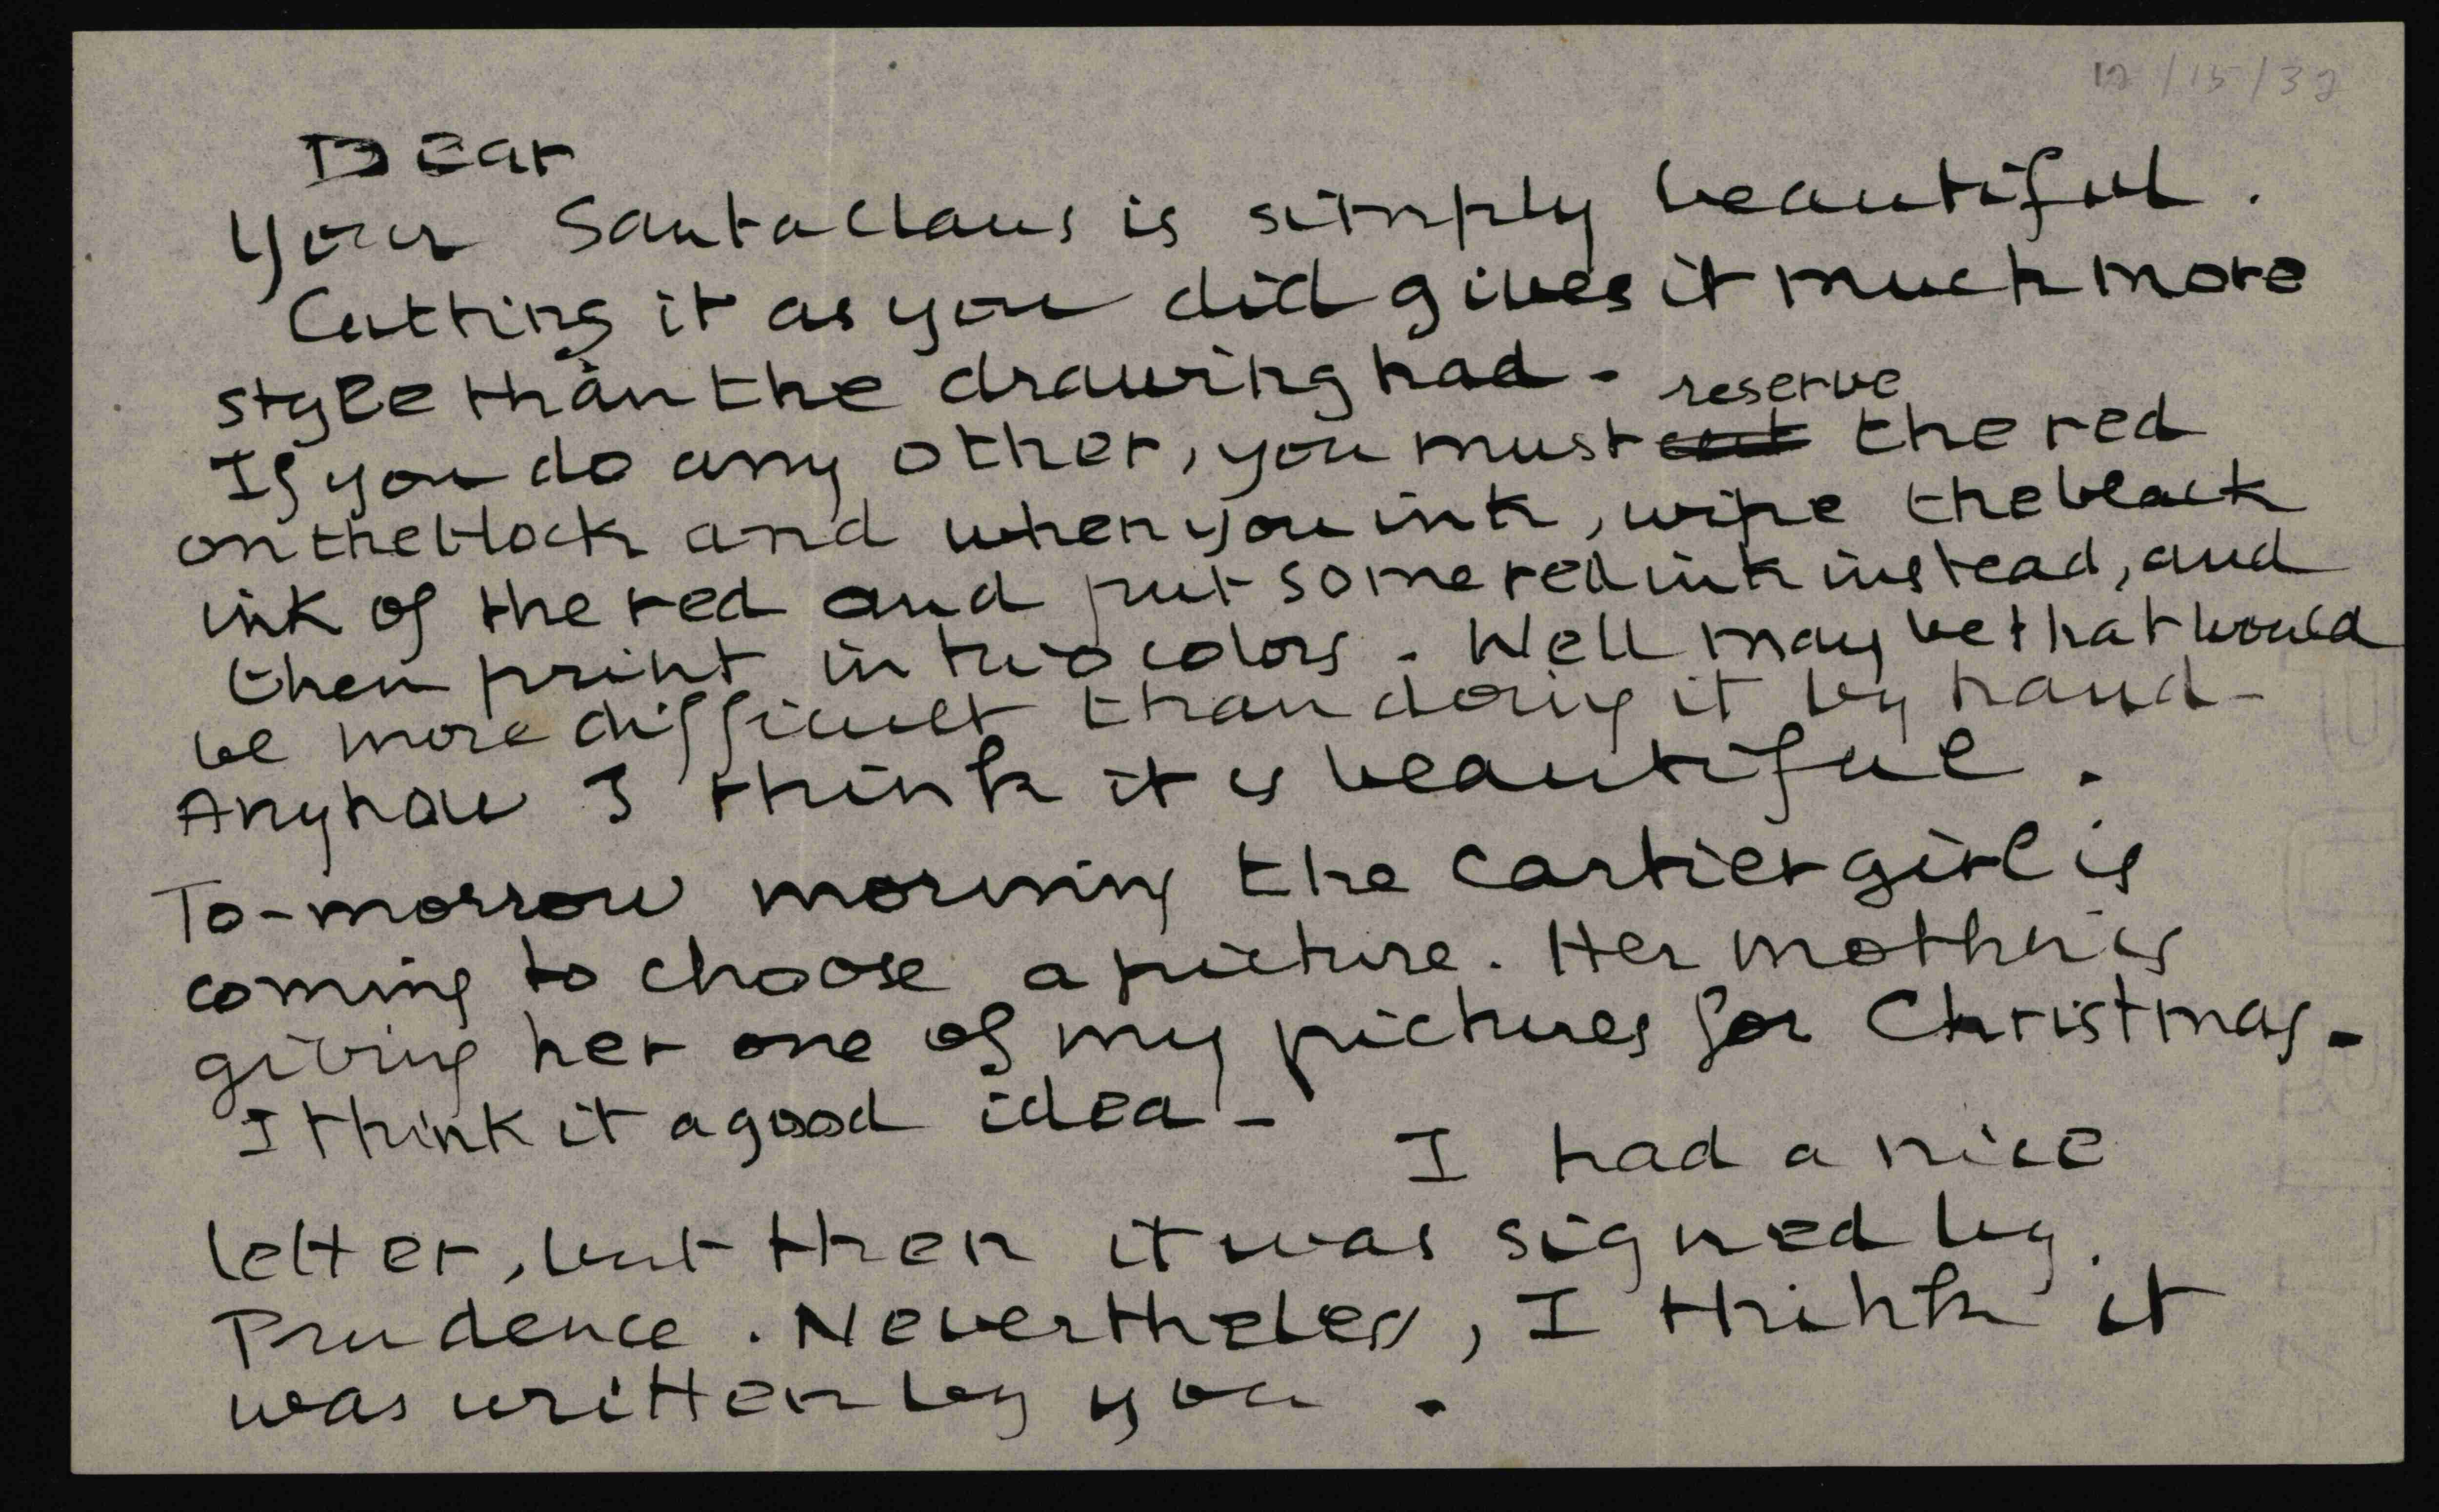 12/15/32
Dear
Your Santa Claus is simply beautiful.
Cutting it as you did gives it much more
style than the drawing had -
reserve
If you do any other, you must cut the red
on the block and when you ink, wipe the black
ink of the red and put some red ink instead, and
then print in two colors. Well may be that would
be more difficult than doing it by hand -
Anyhow I think it is beautiful.
To-morrow morning the Cartier girl is
coming to choose a picture. Her mother is
giving her one of my pictures for Christmas.
I think it a good idea -
I had a nice
letter, but then it was signed by
Prudence. Nevertheless, I think it
was written by you.